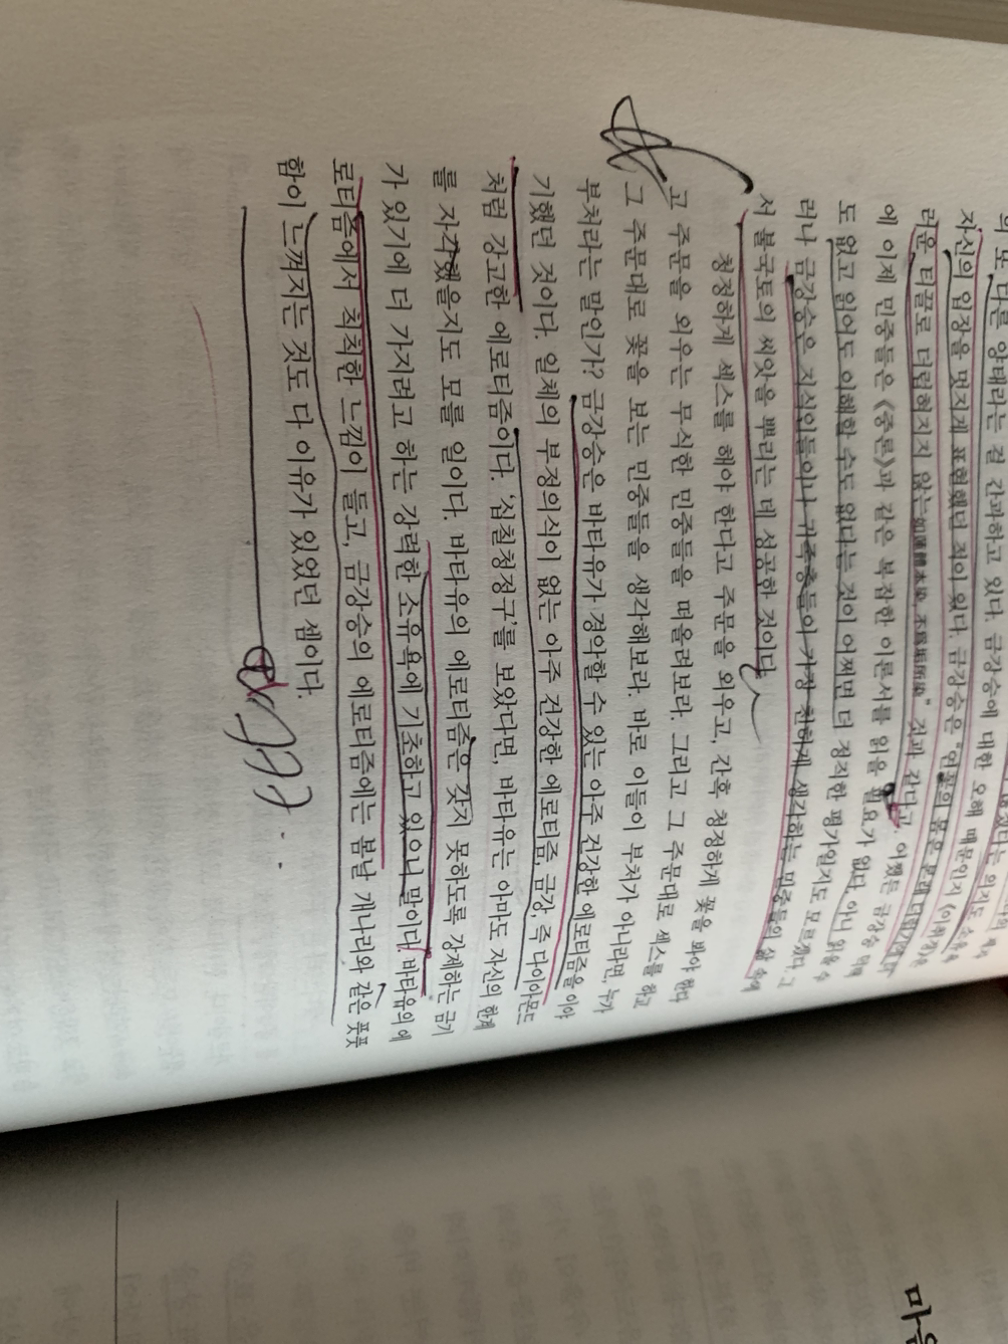 의 또 다른 양태라는 걸 간과하고 있다. 금강승에 대한 오해 때문인지 《이취경》은
자신의 입장을 멋지게 표현했던 적이 있다. 금강승은 "연꽃의 몸은 본래
러운 티끌로 더럽혀지지 않는 不爲垢所染" 것과 같다고. 어쨌든 금강승 덕택
에 이제 민중들은 《중론》과 같은 복잡한 이론서를 읽을 필요가 없다. 아니 읽을 수
도 없고 읽어도 이해할 수도 없다는 것이 어쩌면 더 정직한 평가일지도 모르겠다. 그
러나 금강승은 지식인들이나 귀족층들이 가장 천하게 생각하는 민중들의 삶 속에
서 불국토의 씨앗을 뿌리는 데 성공한 것이다.
청정하게 섹스를 해야 한다고 주문을 외우고, 간혹 청정하게 꽃을 봐야 한다
고 주문을 외우는 무식한 민중들을 떠올려보라. 그리고 그 주문대로 섹스를 하고
그 주문대로 꽃을 보는 민중들을 생각해보라. 바로 이들이 부처가 아니라면, 누가
부처라는 말인가? 금강승은 바타유가 경악할 수 있는 아주 건강한 에로티즘을 이야
기했던 것이다. 일체의 부정의식이 없는 아주 건강한 에로티즘, 금강, 즉 다이아몬드
처럼 강고한 에로티즘이다. '십칠청정구'를 보았다면, 바타유는 아마도 자신의 한계
를 자각했을지도 모를 일이다. 바타유의 에로티즘은 갖지 못하도록 강제하는 금기
가 있기에 더 가지려고 하는 강력한 소유욕에 기초하고 있으니 말이다. 바타유의 에
로티즘에서 칙칙한 느낌이 들고, 금강승의 에로티즘에는 봄날 개나리와 같은 풋풋
함이 느껴지는 것도 다 이유가 있었던 셈이다.